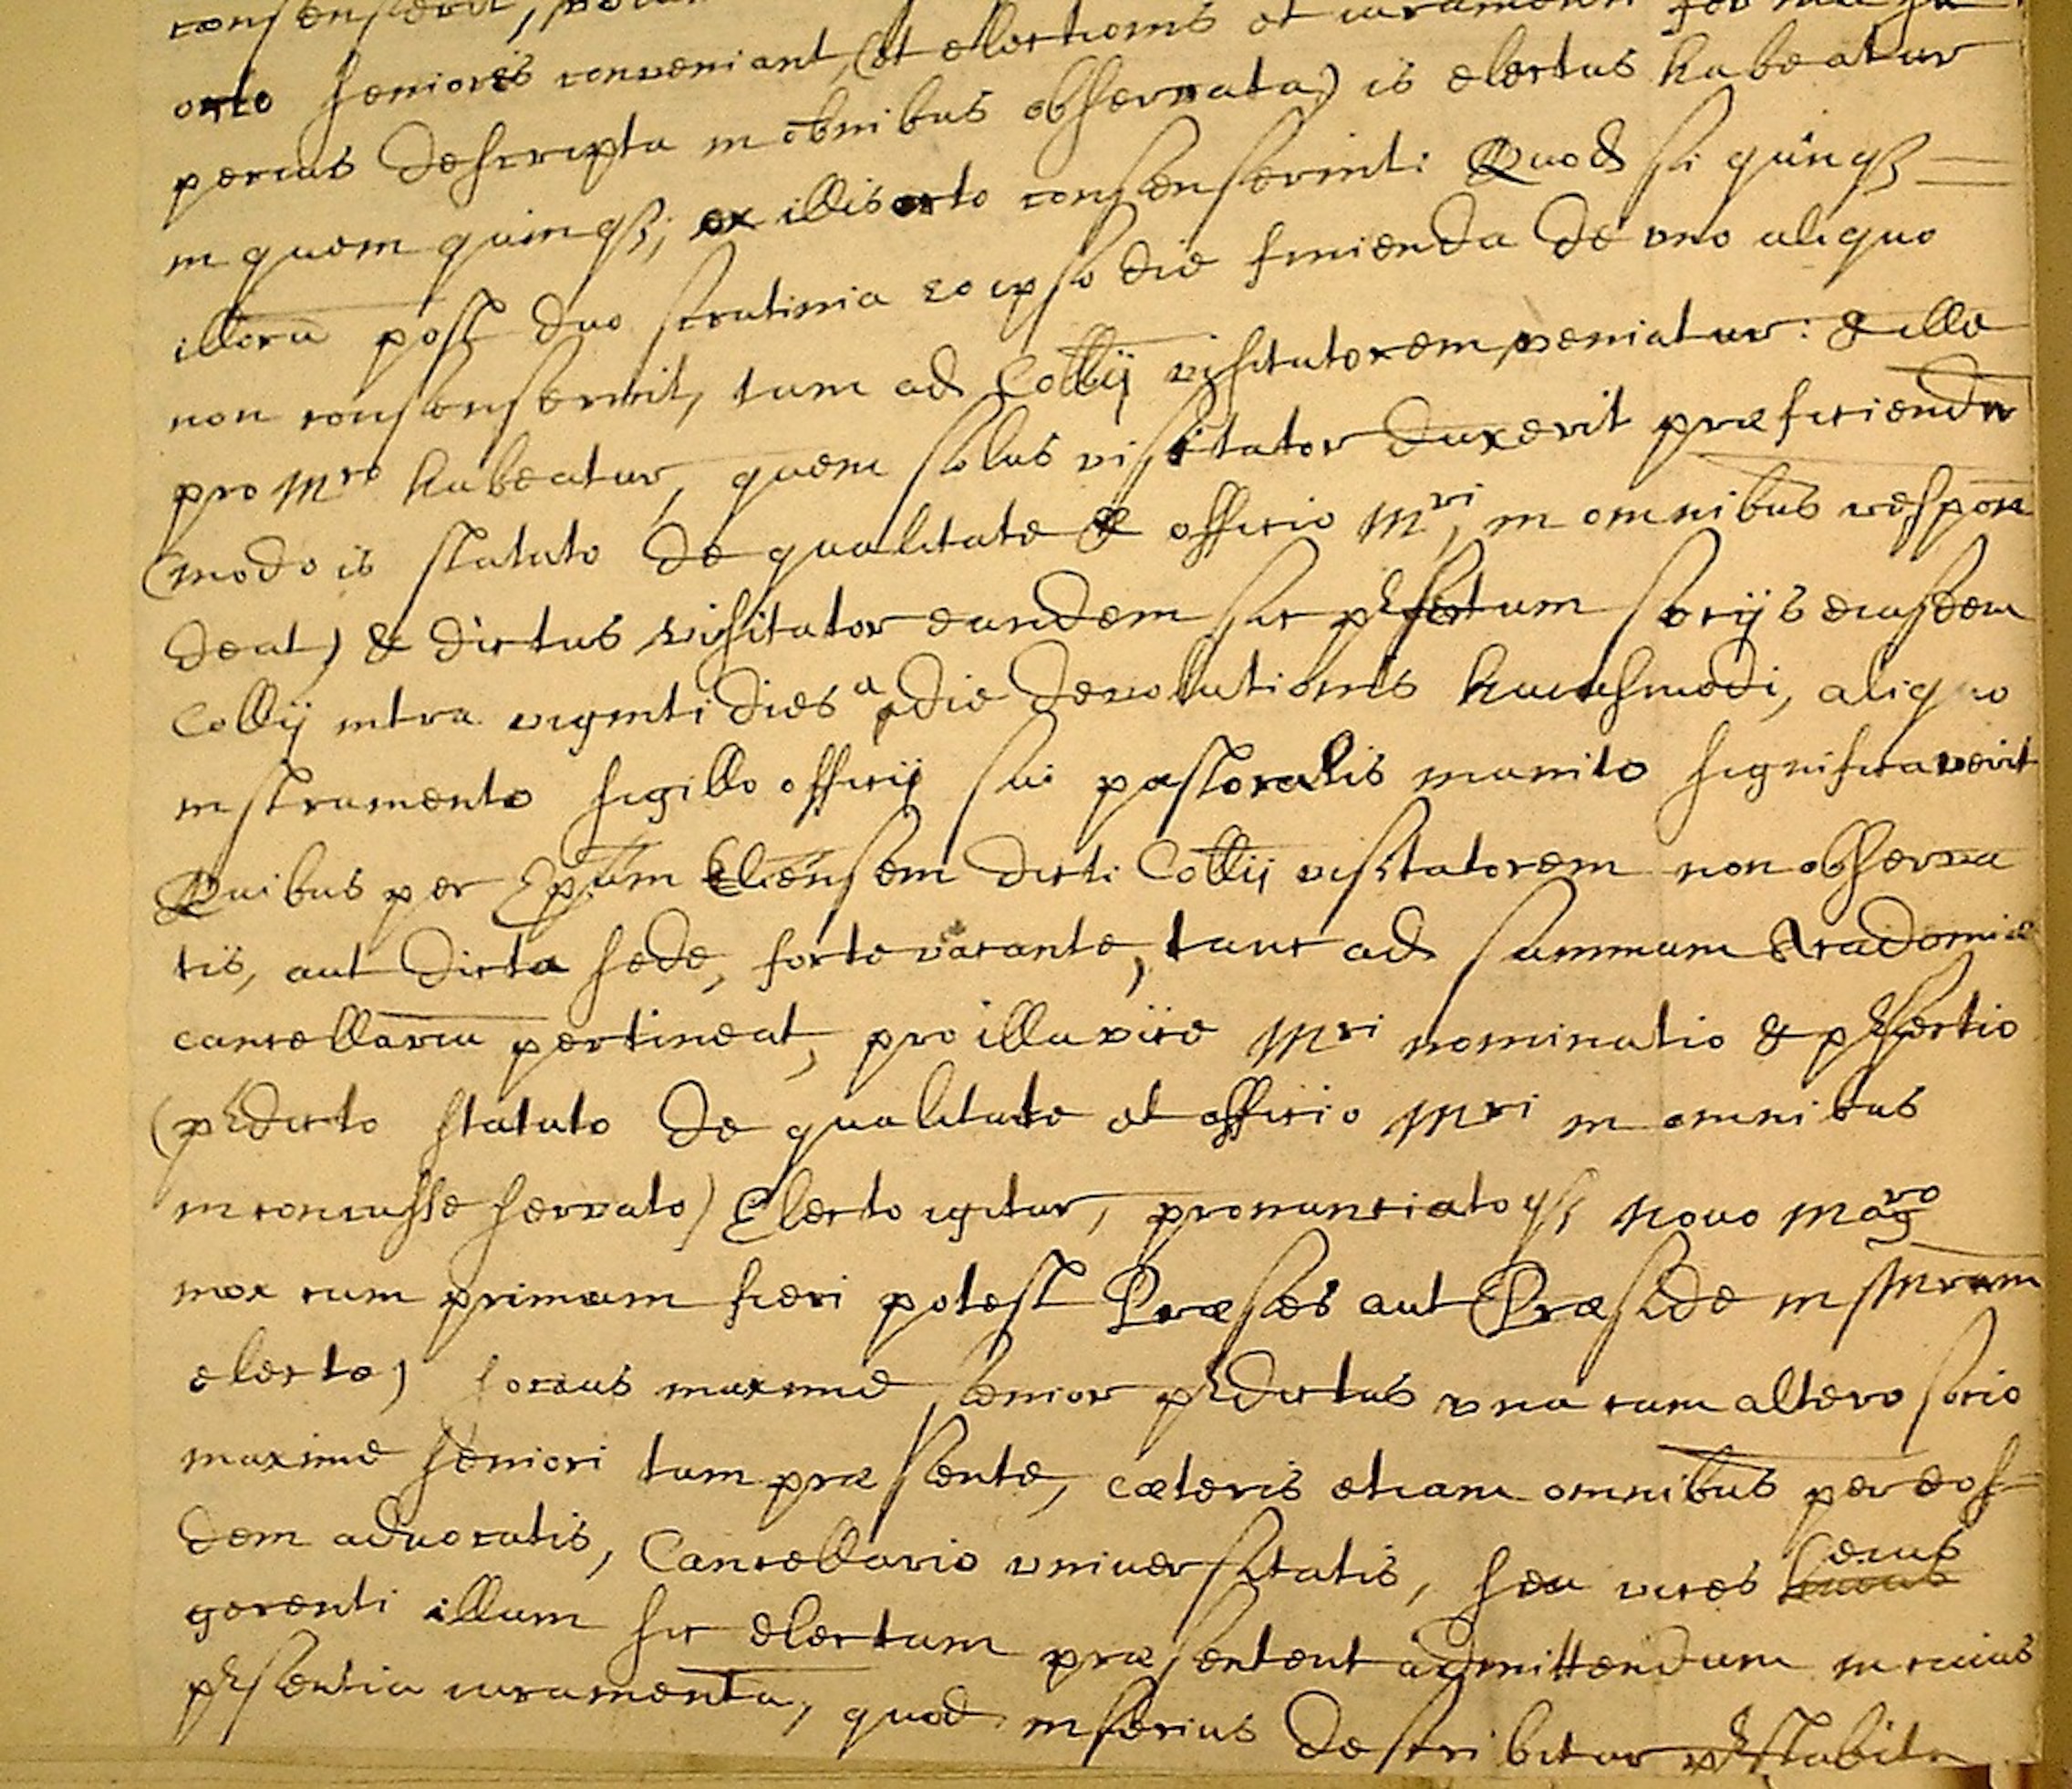 consenserit,
octo seniores conveniant, (et electionis et iuramenti forma su
perius descripta in oībus observata) is electus habeatur
in quem quinqȝ; ex illis octo consenserint: Quod si quinqȝ
illorū post duo scrutinia eo ipso die finienda de uno aliquo
non consenserint, tum ad Collij visitatorem veniatur: & ille
pro Mro habeatur, quem solus visitator duxerit præficiendū
(modo is statuto de qualitate & officio Mri, in omnibus respon
deat) & dictus visitator eundem sic p̄fectum socijs eiusdem
Collij intra viginti dies a die devolutionis huiusmodi, aliquo
instrumento sigillo officij sui pastoralis munito significaverit
Quibus per Epūm Eliensem dicti Collij visitatorem non observa
tis, aut dicta sede, forte vacante, tunc ad summum Academiæ
cancellariū pertineat, pro illa vice Mri nominatio & p̄fectio
(p̄dicto statuto de qualitate et officio Mri in omnibus
inconcusse servato) Electo igitur, pronunciatoqȝ novo Magro
mox cum primum fieri potest Præses aut Præside in Mrum
electo, socius maxime senior p̄dictus una cum altero socio
maxime seniori tum præsente, cæteris etiam omnibus per eos-
dem advocatis, Cancellario universitatis, seu vices eius
gerenti illum sic electum præsentent admittendum in cuius
p̄sentia iuramentū, quod inferius describitur p̄stabit